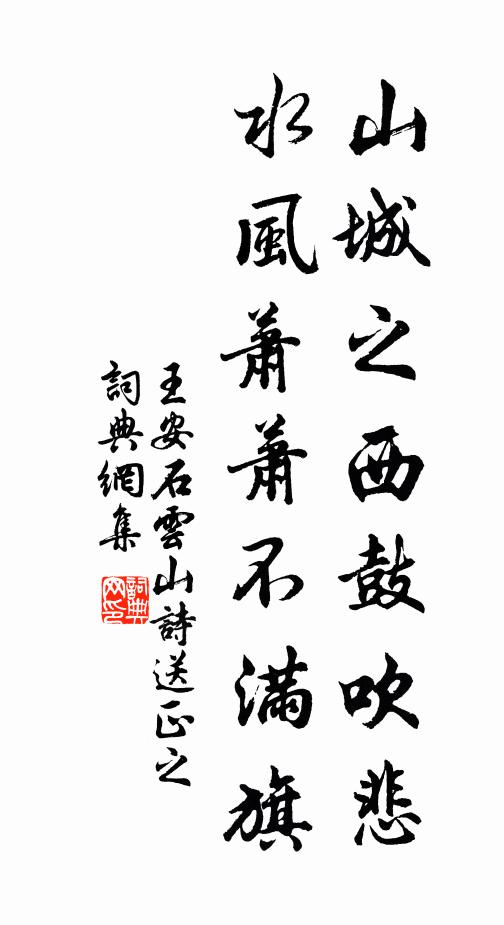 山城之西鼓吹悲
水風蕭蕭不滿旗
王安石雲山詩送正之
詞典網集
詞典
网印